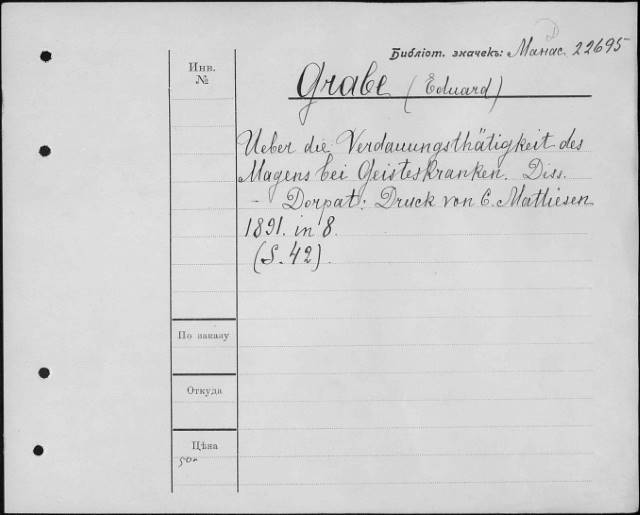 Библіот. значекъ: Манас. 22695
Инв.
№
Grabe (Eduard)
Ueber die Verdauungsthätigkeit des
Magens bei Geisteskranken. Diss.
- Dorpat: Druck von C. Mattiesen
1891. in 8.
(S. 42).
По заказу
Откуда
Цѣна
50к